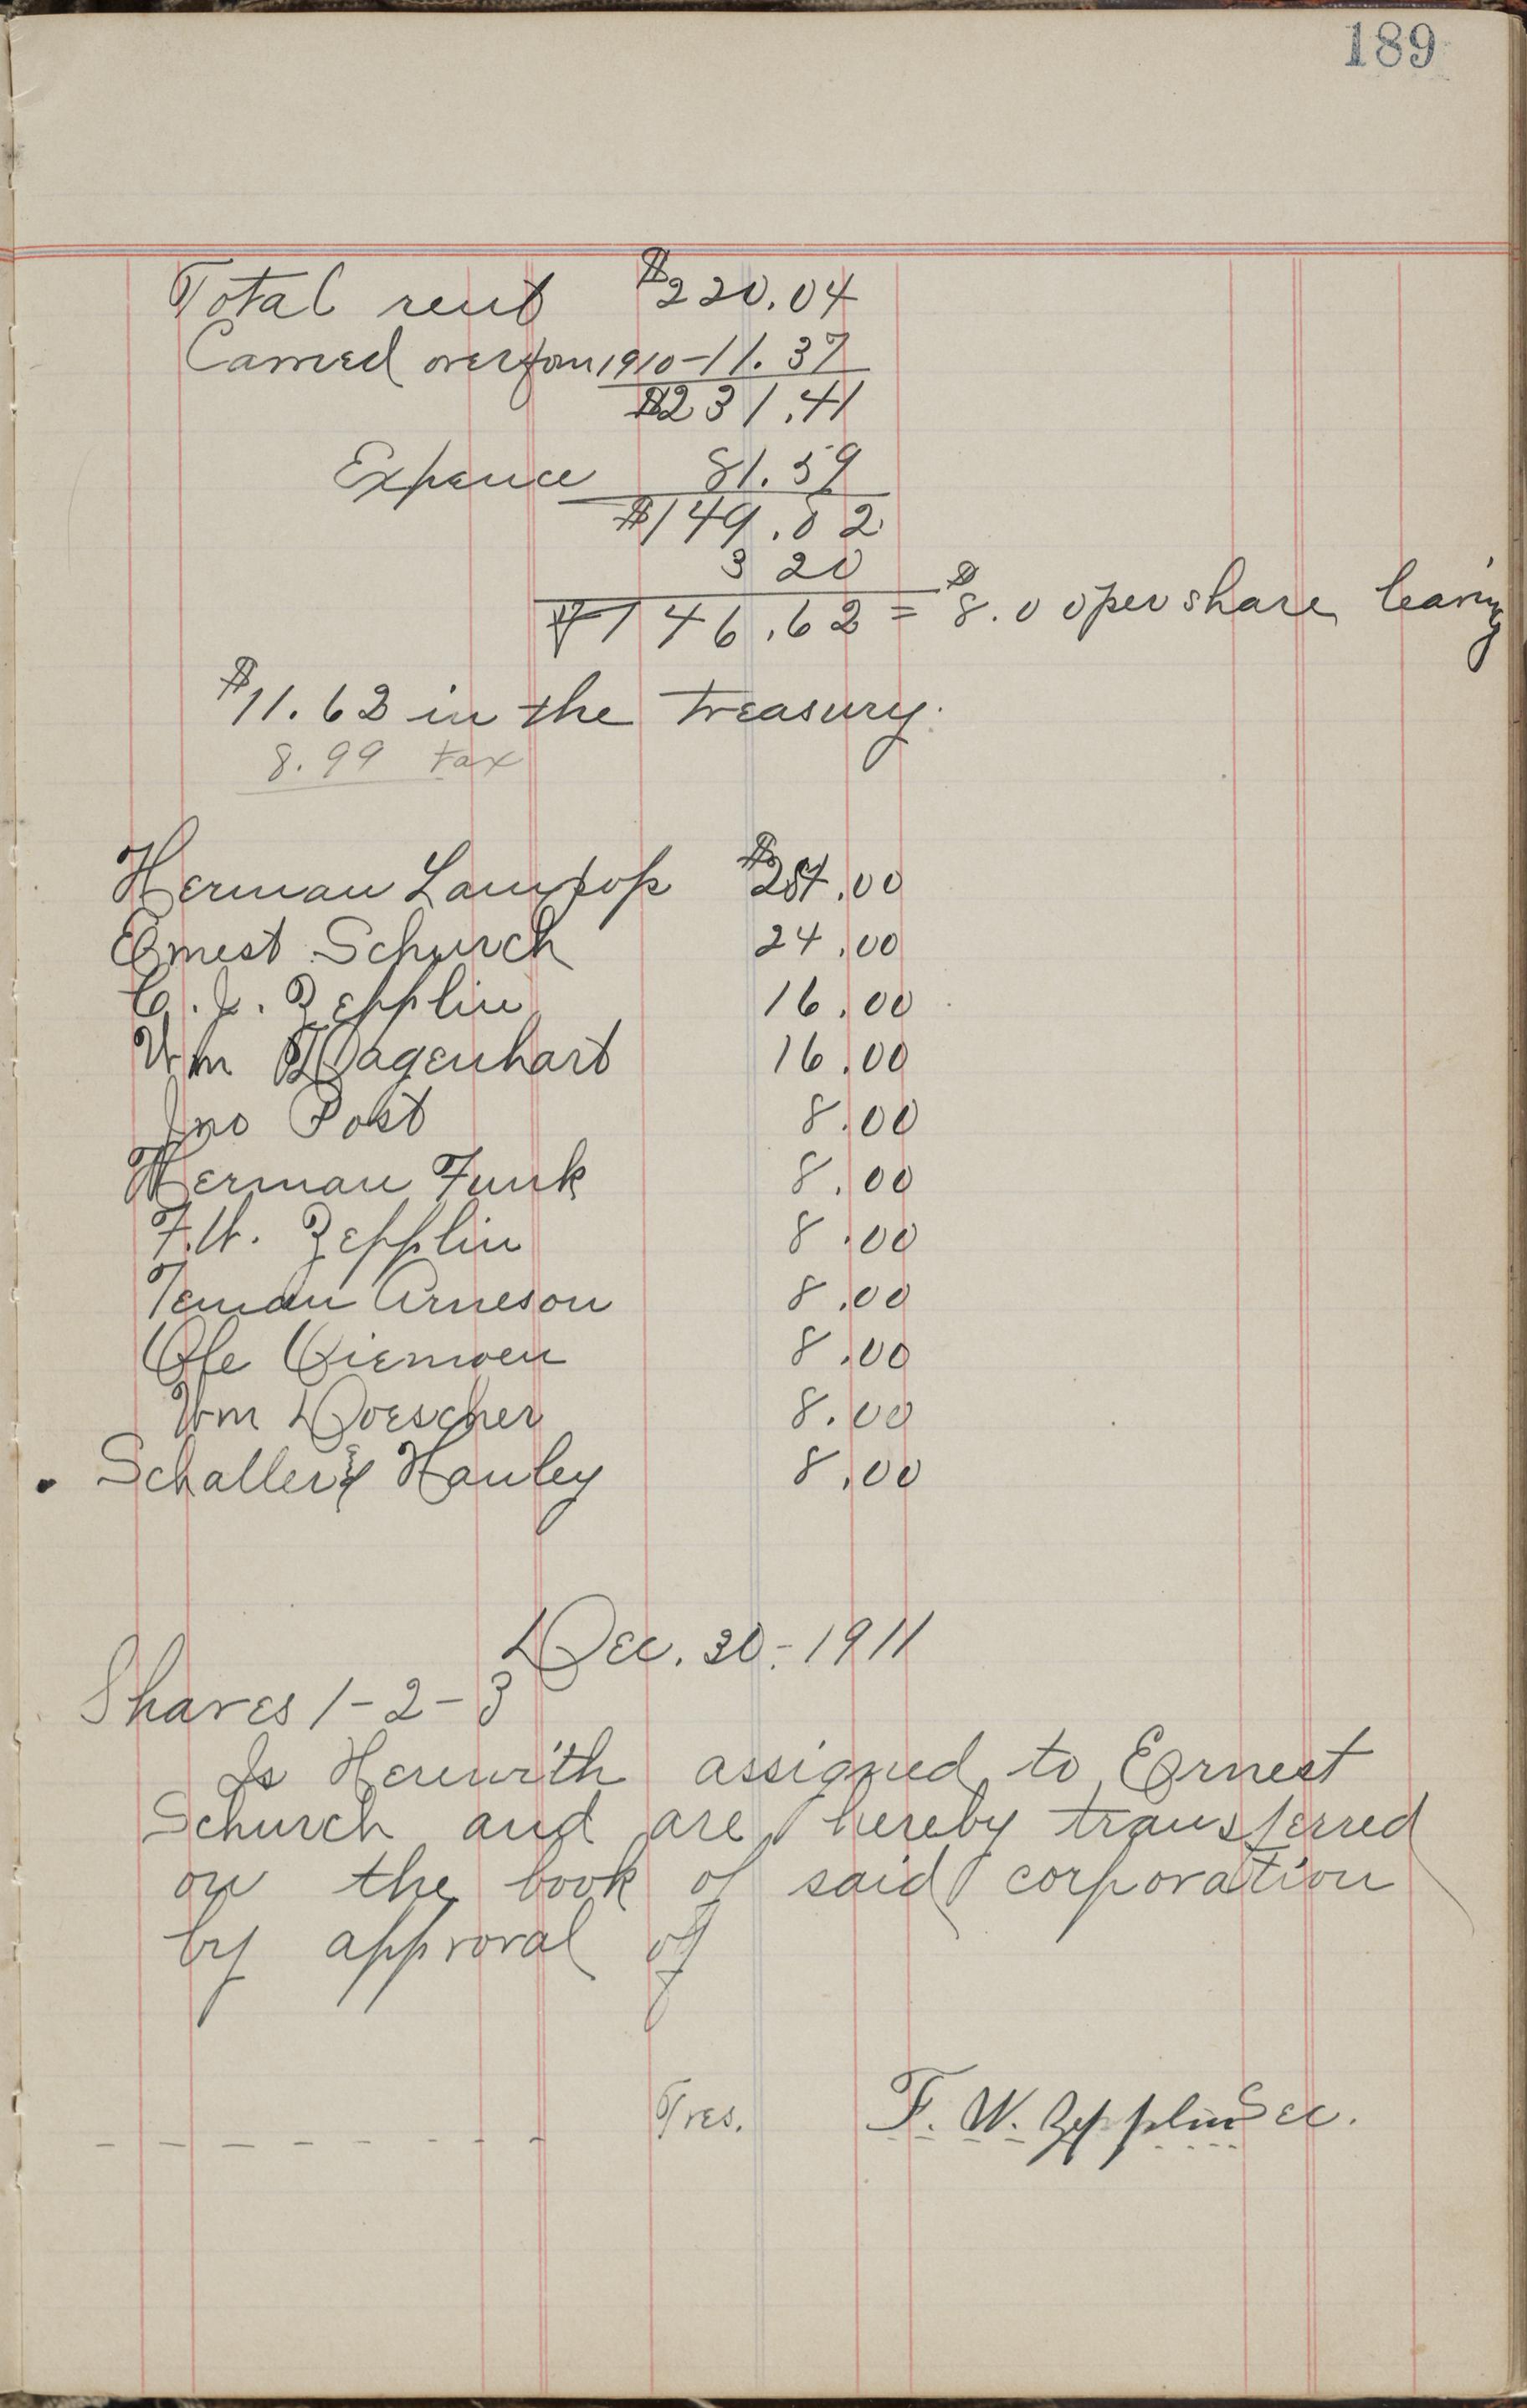 189
Total rent $220.04
Carried over from 1910 - 11.37
$231.41
Expence 81.59
$149.82
3 20
$146.62 = $8.00 per share leaving
$11.62 in the treasury.
8.99 tax
Herman $24.00
Ernest Schurch 24.00
C. J. Zepplin 16.00
Wm Wagenhart 16.00
Jno Post 8.00
Herman Funk 8.00
F.W. Zepplin 8.00
Arneson 8.00
Ole 8.00
Wm Doescher 8.00
Schaller & Hanley 8.00
Dec. 30. - 1911
Shares 1-2-3
Is Herewith assigned to Ernest
Schurch and are hereby transferred
on the book of said corporation
by approval of
Tres. F. W. Zepplin Sec.